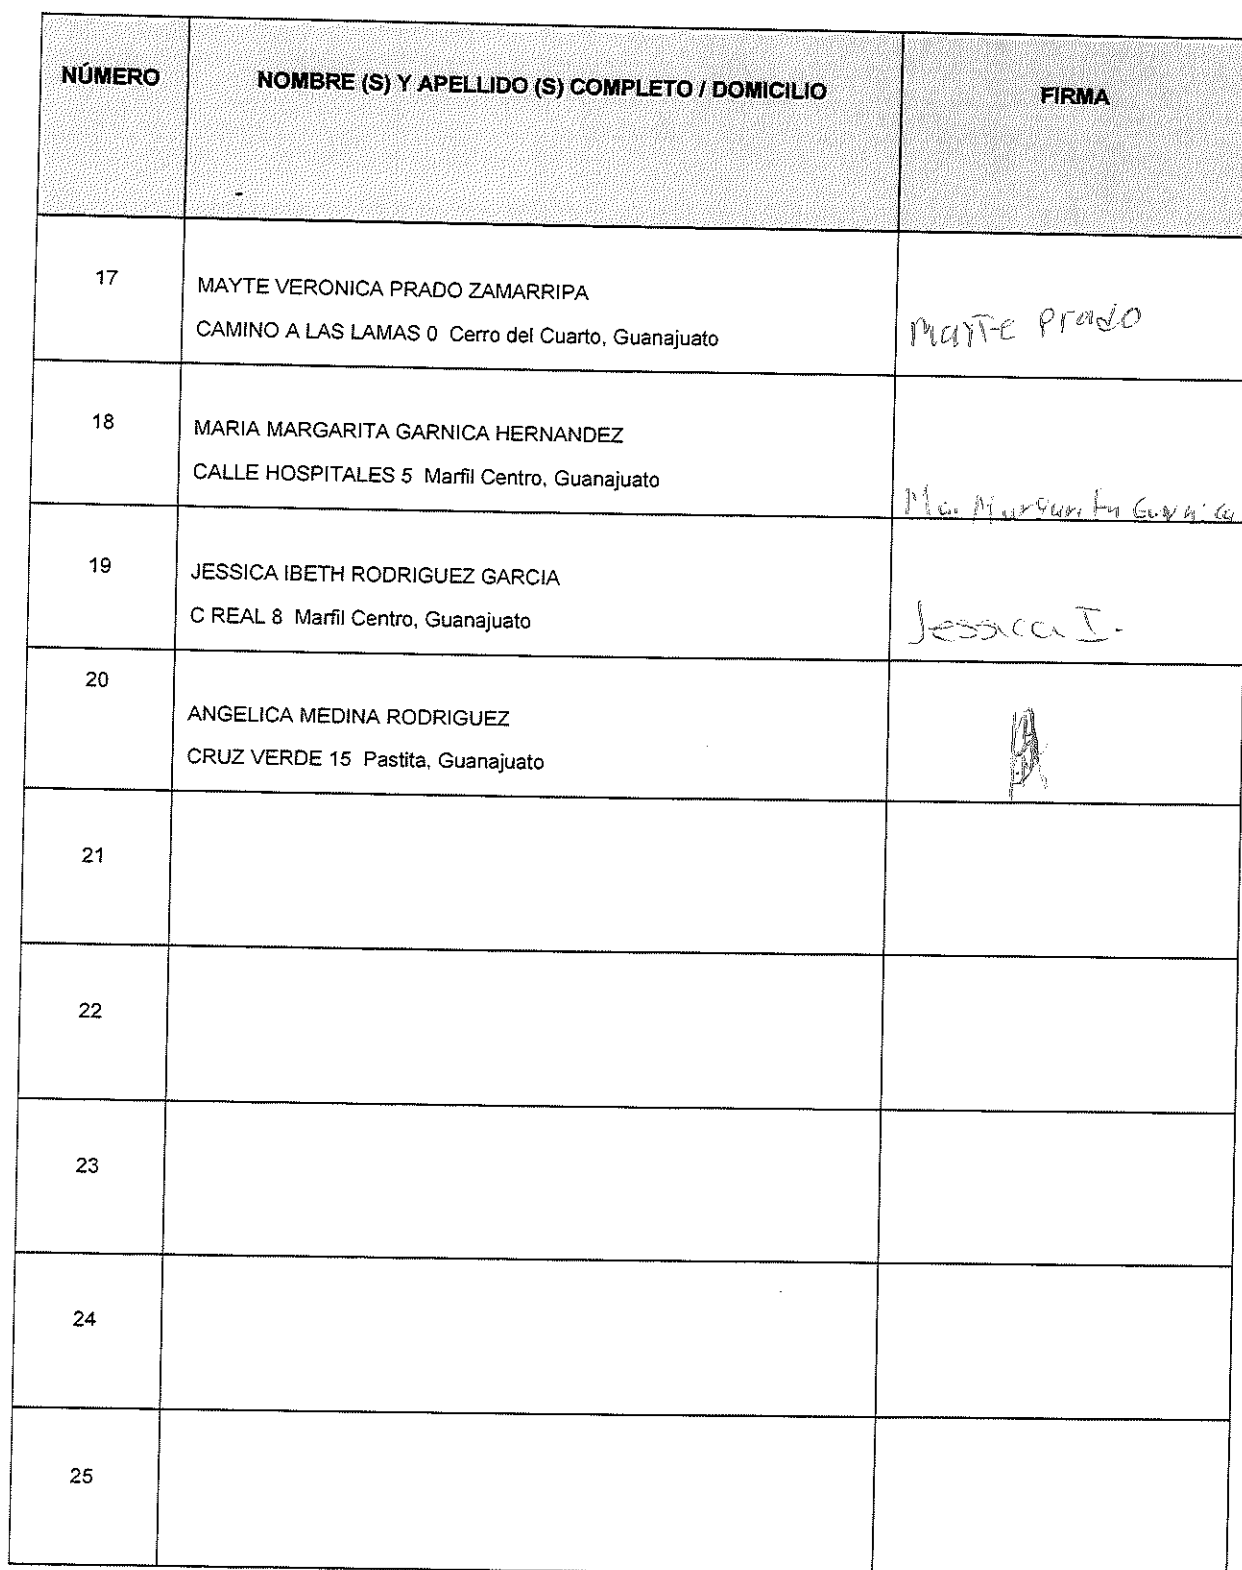 NÚMERO NOMBRE (S) Y APELLIDO (S) COMPLETO / DOMICILIO FIRMA
17
MAYTE VERONICA PRADO ZAMARRIPA
CAMINO A LAS LAMAS 0 Cerro del Cuarto, Guanajuato
Mayte Prado
18
MARIA MARGARITA GARNICA HERNANDEZ
CALLE HOSPITALES 5 Marfil Centro, Guanajuato
Ma. Margarita Garnica
19
JESSICA IBETH RODRIGUEZ GARCIA
C REAL 8 Marfil Centro, Guanajuato
Jessica I.
20
ANGELICA MEDINA RODRIGUEZ
CRUZ VERDE 15 Pastita, Guanajuato
21
22
23
24
25